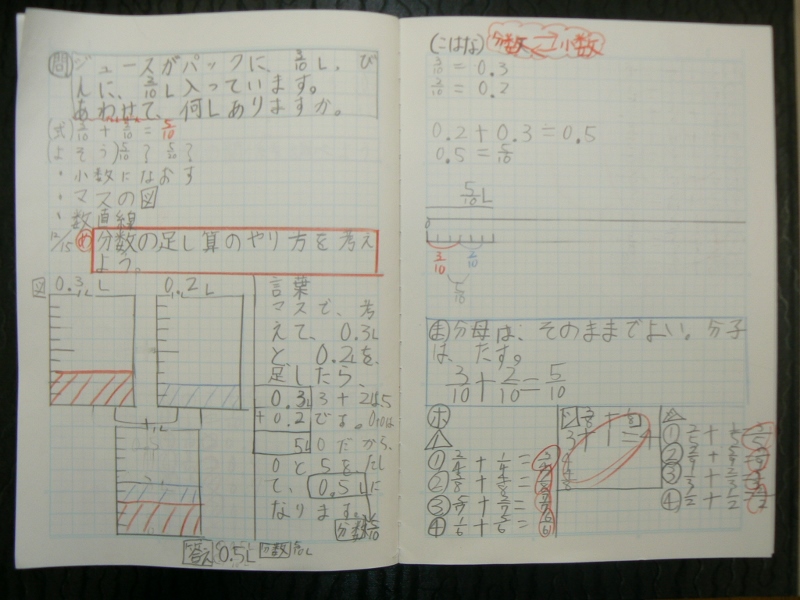 問 ジュースがパックに、3/10L、び
んに、2/10L入っています。
あわせて、何Lありますか。
(式) 3/10 + 2/10 = 5/10
(よそう) 5/10? 5/20?
・小数になおす
・マスの図
・数直線
12/15 め 分数の足し算のやり方を考え
よう。
図 0.3L 0.2L
1L 1L
1L
言葉
マスで、考
えて、0.3L
と、0.2Lを、
足したら、
0.3 3+2は5
+0.2 です。
5 0だから、
0と5をたし
て、0.5Lに
なります。
分数 5/10
答え 0.5L 分数
(こはな) 分数⇄小数
3/10 = 0.3
2/10 = 0.2
0.2+0.3=0.5
0.5=5/10
5/10L
0
3/10 2/10
5/10
ま 分母は、そのままでよい。分子
は、たす。
3/10+2/10=5/10
① 2/4 + 1/4 =
②
③
④ 1/6 + 5/6 = 6/6
①
②
③
④ 1/2 + 1/2 =